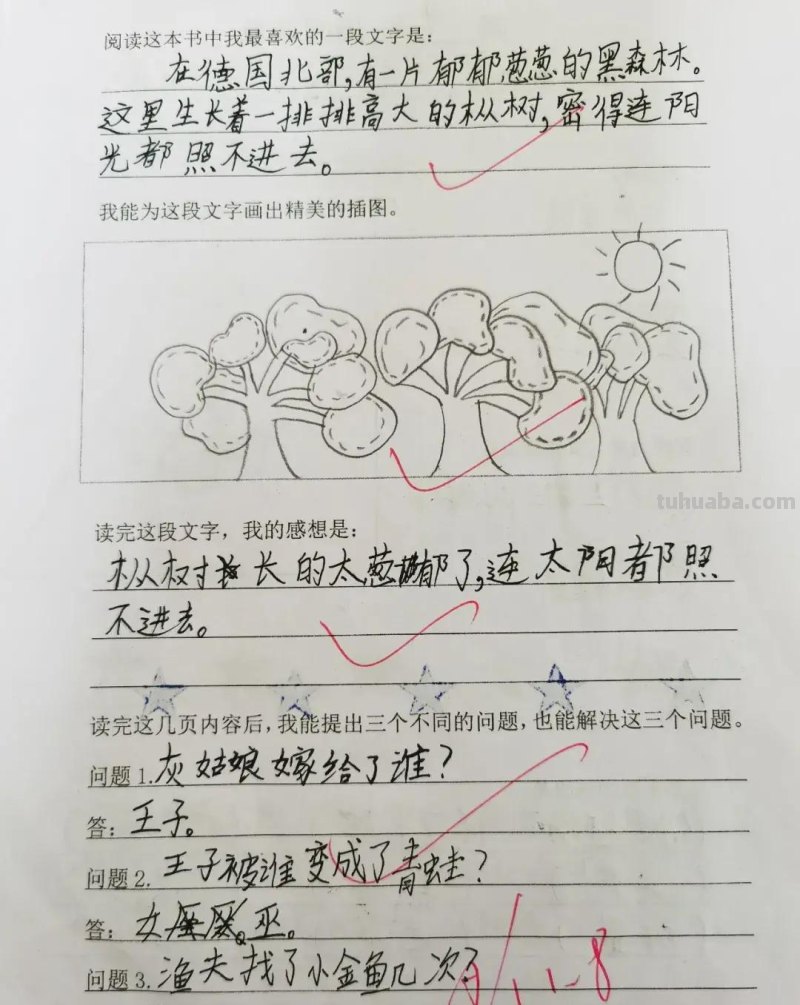 阅读这本书中我最喜欢的一段文字是：
在德国北部,有一片郁郁葱葱的黑森林。
这里生长着一排排高大的枞树,密得连阳
光都照不进去。
我能为这段文字画出精美的插图。
tuhuaba.com
读完这段文字，我的感想是：
枞树长的太葱郁了,连太阳都照
不进去。
读完这几页内容后，我能提出三个不同的问题，也能解决这三个问题。
问题1.灰姑娘嫁给了谁?
答：王子。
问题2.王子被谁变成了青蛙?
答：女巫。
问题3.渔夫找了小金鱼几次?